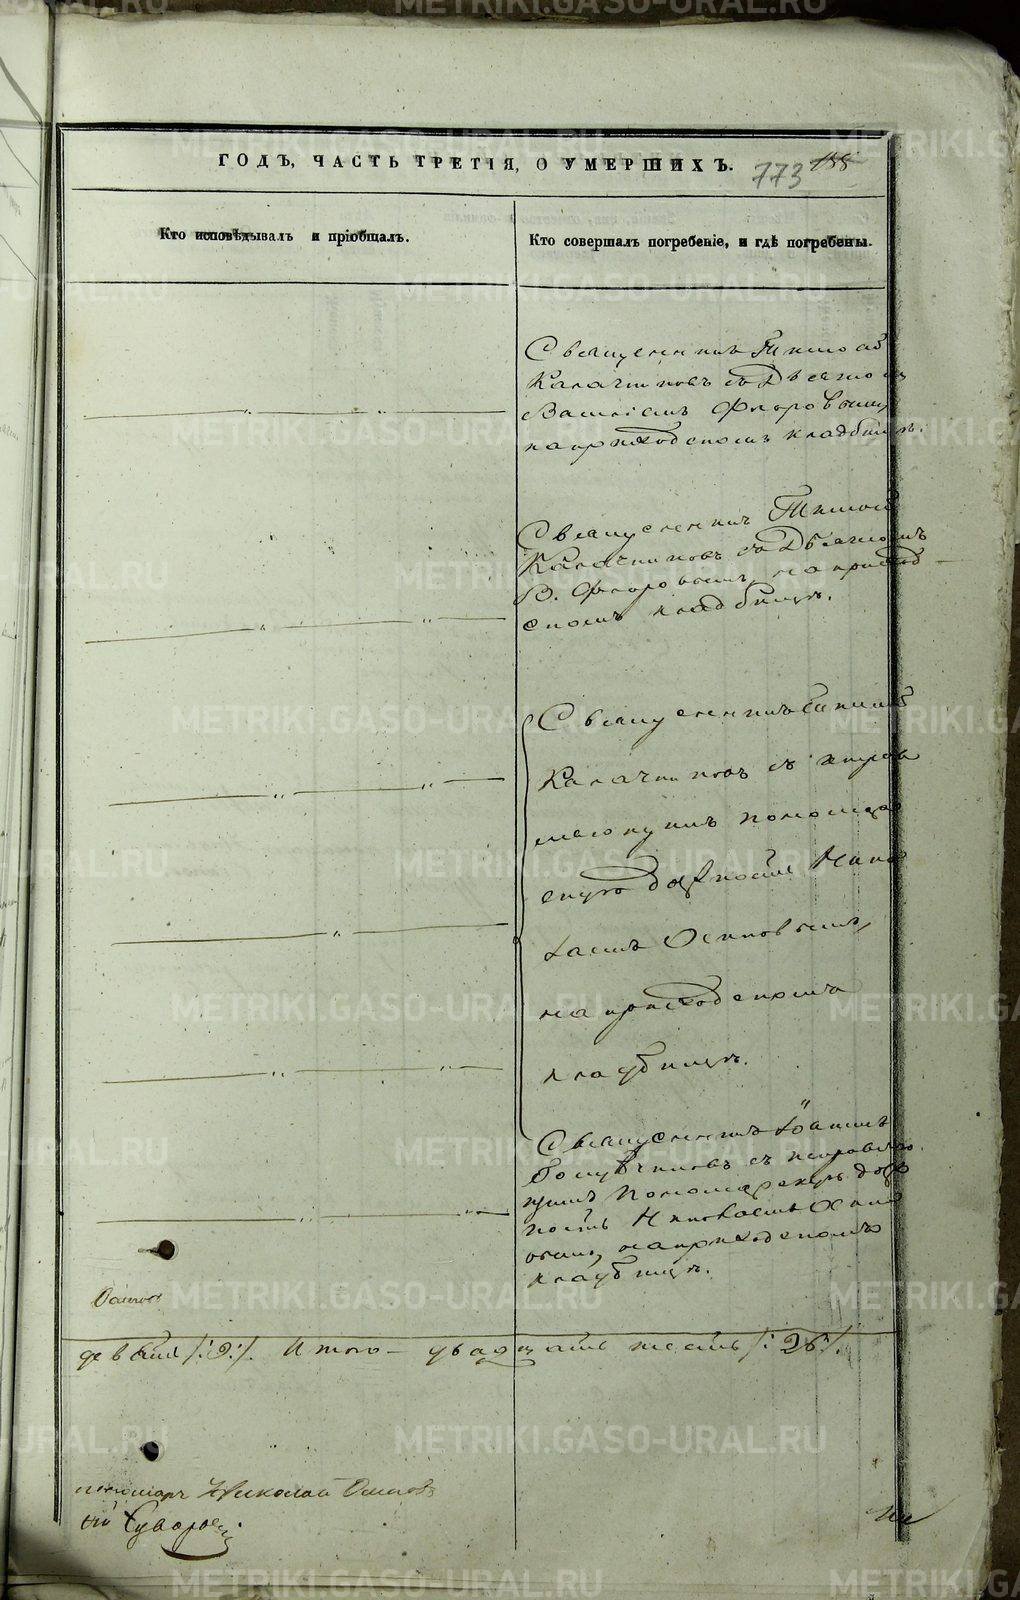 ГОДЪ, ЧАСТЬ ТРЕТІЯ, О УМЕРШИХЪ.
773 188
Кто исповѣдывалъ и пріобщалъ.
Кто совершалъ погребеніе, и гдѣ погребены.
Священникъ Тимоѳей
Калачниковъ съ
Василіемъ Флоровымъ,
на приходскомъ кладбищѣ.
Священникъ Тимоѳей
Калачниковъ съ
В. Флоровымъ, на приход-
скомъ кладбищѣ.
Священникъ Тимоѳей
Калачниковъ съ исправ
ляющимъ пономар
скую должность Нико
лаемъ Осиповымъ,
на приходскомъ
кладбищѣ.
Священникъ Іоаннъ
съ исправляю
щимъ Пономарскую долж
ность Николаемъ Осипо
вымъ, на приходскомъ
кладбищѣ.
девять /:9:/. Итого - двадцать шесть /:26:/.
пономарь Николай Осиповъ
METRIKI.GASO-URAL.RU